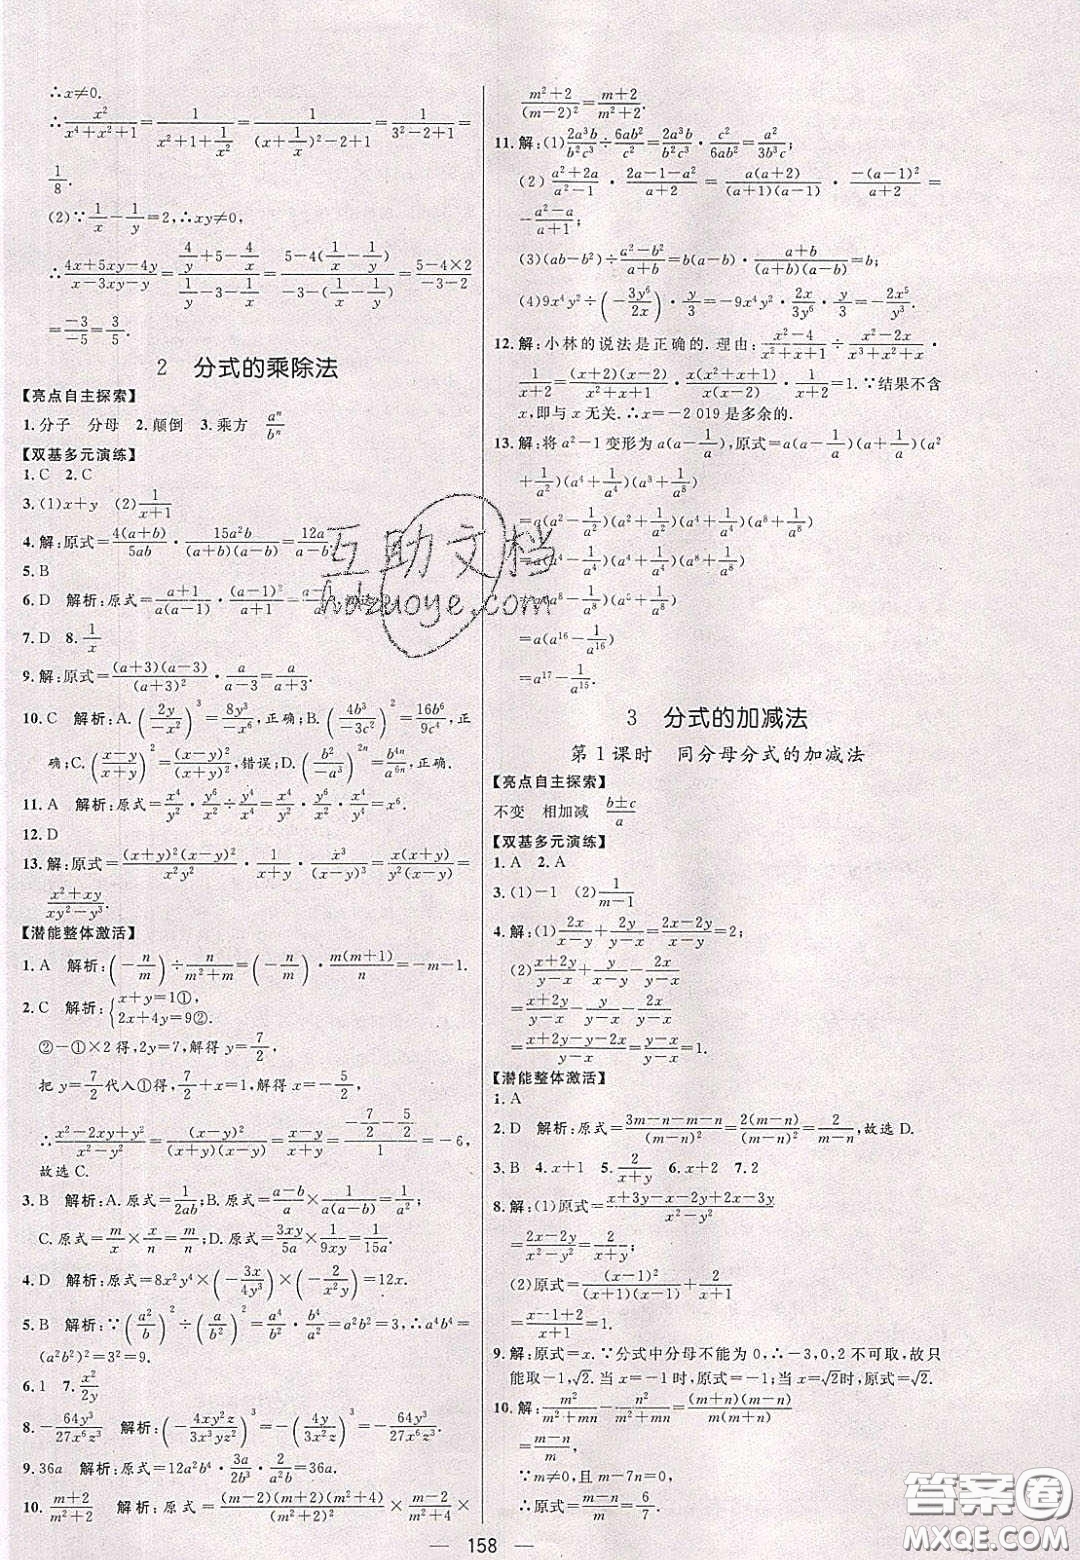 ∴x≠0.
∴x²/(x⁴+x²+1)=1/(x²+1+1/x²)=1/((x+1/x)²-2+1)=1/(3²-2+1)=
1/8.
(2)∵1/x-1/y=2,∴xy≠0,
∴(4x+5xy-4y)/(x-3xy-y)=(4/y+5-4/x)/(1/y-3-1/x)=(5-4(1/x-1/y))/(-3-(1/x-1/y))=(5-4×2)/(-3-2)
=(-3)/(-5)=3/5.
2 分式的乘除法
【亮点自主探索】
1.分子 分母 2.颠倒 3.乘方 aⁿ/bⁿ
【双基多元演练】
1.C 2.C
3.(1)x+y (2)1/(x+1)
4.解:原式=4(a+b)/5ab·15a²b/((a+b)(a-b))=12a/(a-b).
5.B
6.D 解析:原式=(a+1)/(a(a-1))·(a-1)²/(a+1)=
7.D 8.1/x
9.解:原式=(a+3)(a-3)/(a+3)²·a/(a-3)=a/(a+3).
10.C 解析:A.(2y/-x²)³=8y³/-x⁶,正确;B.(4b³/-3c²)²=16b⁶/9c⁴,正
确;C.((x-y)/(x+y))²=(x-y)²/(x+y)²,错误;D.(b²/-a³)²ⁿ=b⁴ⁿ/a⁶ⁿ,正确.
11.A 解析:原式=x⁴/y²·y⁶/x⁶÷y⁴/x⁴=x⁴/y²·y⁶/x⁶·x⁴/y⁴=x⁶.
12.D
13.解:原式=(x+y)²(x-y)²/x²y²·1/(x+y)·x³/(x-y)³=x(x+y)/(y²(x-y))
=(x²+xy)/(xy²-y³).
【潜能整体激活】
1.A 解析:(-n/m)÷n/(m²+m)=(-n/m)·m(m+1)/n=-m-1.
2.C 解析:{x+y=1①,
2x+4y=9②.
②-①×2得,2y=7,解得y=7/2,
把y=7/2代入①得,7/2+x=1,解得x=-5/2,
∴(x²-2xy+y²)/(x²-y²)=(x-y)²/((x+y)(x-y))=(x-y)/(x+y)=(-7/2-5/2)/1=-6,
故选C.
3.B 解析:A.原式=1/2ab;B.原式=(a-b)/a×1/(a(a-b))=1/a²;
C.原式=m/x×x/n=m/n;D.原式=3xy/5a×1/9xy=1/15a.
4.D 解析:原式=8x²y⁴×(-3x/4y³)×(-2/x²y)=12x.
5.B 解析:∵(a²/b)²÷(a/b²)²=a⁴/b²·b⁴/a²=a²b²=3,∴a⁴b⁴=
(a²b²)²=9.
6.1 7.x²/2y
8.-64y³/27x⁶z³ 解析:原式=(-4xy²z/3x³yz²)³=(-4y/3x²z)³=-64y³/27x⁶z³.
9.36a 解析:原式=12a²b⁴·3a/2b³·2/ab=36a.
10.(m+2)/(m²+2) 解析:原式=(m-2)(m+2)(m²+4)/(m²+2)²×(m-2)/(m²+4)×
(m²+2)/(m-2)²=(m+2)/(m²+2).
11.解:(1)2a³b/b²c³÷6ab²/c²=2a³b/b²c³·c²/6ab²=a²/3b³c;
(2)(a²+2a)/(a²-1)·(2a-1-a²)/(a+2)=a(a+2)/((a+1)(a-1))·-(a-1)²/(a+2)=
-(a²-a)/(a+1);
(3)(ab-b²)÷(a²-b²)/(a+b)=b(a-b)·(a+b)/((a+b)(a-b))=b;
(4)9x⁴y²÷(-3y⁶/2x)·y/3=-9x⁴y²·2x/3y⁶·y/3=-2x⁵/y³.
12.解:小林的说法是正确的.理由:(x²-4)/(x²-4x+4)÷(x²-2x)/(x-2)²·
1/(x+2)=(x+2)(x-2)/(x-2)²·(x-2)²/(x(x-2))·x/(x+2)=1.∵结果不含
x,即与x无关.∴x=-2 019是多余的.
13.解:将a²-1变形为a(a-1/a),原式=a(a-1/a)(a+1/a)(a²
+1/a²)(a⁴+1/a⁴)(a⁸+1/a⁸)
=a(a²-1/a²)(a²+1/a²)(a⁴+1/a⁴)(a⁸+1/a⁸)
=a(a⁸-1/a⁸)(a⁸+1/a⁸)
=a(a¹⁶-1/a¹⁶)
=a¹⁷-1/a¹⁵.
3 分式的加减法
第1课时 同分母分式的加减法
【亮点自主探索】
不变 相加减 (b±c)/a
【双基多元演练】
1.A 2.A
3.(1)-1 (2)1/(m-1)
4.解:(1)2x/(x-y)+2y/(y-x)=(2x-2y)/(x-y)=2;
(2)(x+2y)/(y-x)+y/(x-y)-2x/(y-x)
=(x+2y)/(y-x)-y/(y-x)-2x/(y-x)
=(x+2y-y-2x)/(y-x)=(y-x)/(y-x)=1.
【潜能整体激活】
1.A
2.D 解析:原式=(3m-n-m-n)/(m-n)²=2(m-n)/(m-n)²=2/(m-n),故选D.
3.B 4.x+1 5.2/(x+y) 6.x+2 7.2
8.解:(1)原式=(x+3y-x-2y+2x-3y)/(x²-y²)
=(2x-2y)/(x²-y²)=2/(x+y);
(2)原式=(x-1)²/((x+1)(x-1))+2/(x+1)
=(x-1+2)/(x+1)=1.
9.解:原式=x.∵分式中分母不能为0,∴-3,0,2不可取,故只
能取-1,√2.当x=-1时,原式=-1;当x=√2时,原式=√2.
10.解:m²/(m²+mn)-n²/(m²+mn)=(m+n)(m-n)/(m(m+n))
=(m-n)/m.
∵m≠0,且m=7n,
∴原式=(m-n)/m=6/7.
158
互助文档
hdzuoye.com
答案圈
MXQE.COM